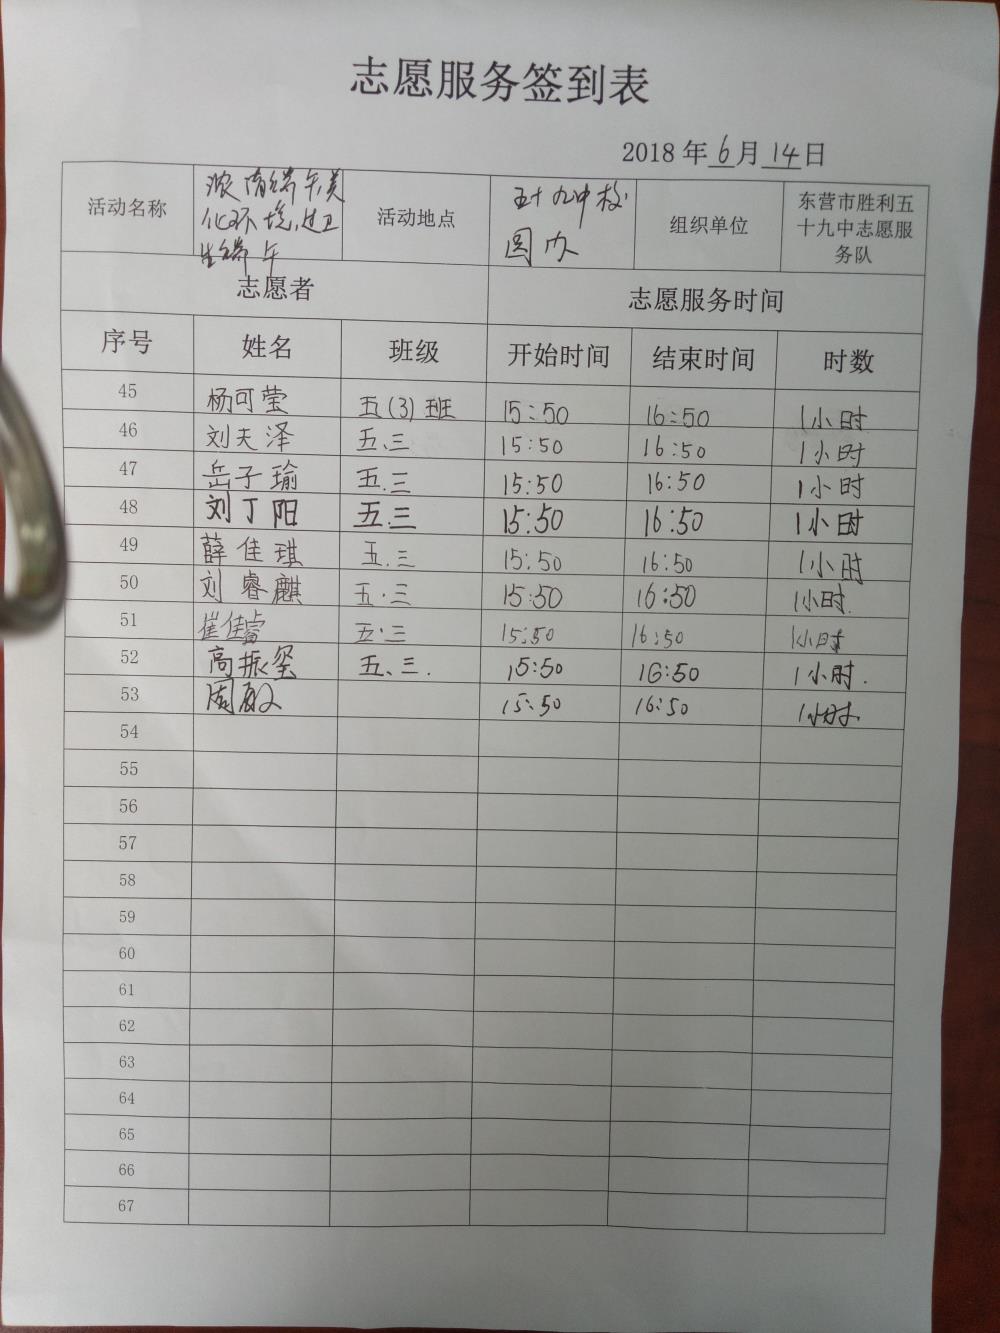 志愿服务签到表
2018 年 6 月 14 日
活动名称 浓情端午,美化环境,过卫生端午 活动地点 五十九中校园内 组织单位 东营市胜利五十九中志愿服务队
志愿者 志愿服务时间
序号 姓名 班级 开始时间 结束时间 时数
45 杨可莹 五(3)班 15:50 16:50 1小时
46 刘夫泽 五.三 15:50 16:50 1小时
47 岳子瑜 五.三 15:50 16:50 1小时
48 刘丁阳 五.三 15:50 16:50 1小时
49 薛佳琪 五.三 15:50 16:50 1小时
50 刘睿麒 五.三 15:50 16:50 1小时.
51 崔佳睿 五.三 15:50 16:50 1小时
52 高振玺 五、三. 15:50 16:50 1小时.
53 周敏 15:50 16:50 1小时.
54
55
56
57
58
59
60
61
62
63
64
65
66
67